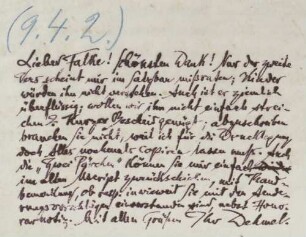 (9.4.2.)
Lieber Falke! Schönsten Dank! Nur der zweite
Vers scheint mir im Satzbau mißraten; Kinder
würden ihn nicht verstehen. Auch ist er ziemlich
überflüssig; wollen wir ihn nicht einfach strei-
chen? Kurzer Bescheid genügt; abzuschreiben
brauchen Sie nicht, weil ich für die Drucklegung
doch Alles nochmals copieren lassen muß. Auch
die „Zwei " können Sie mir einfach
im alten Mscript zurückschicken, mit Rand-
bemerkung, ob resp. inwieweit Sie mit den Ände-
rungsvorschlägen einverstanden sind, nebst Hono-
rarnotiz. Mit allen Grüßen Ihr Dehmel.